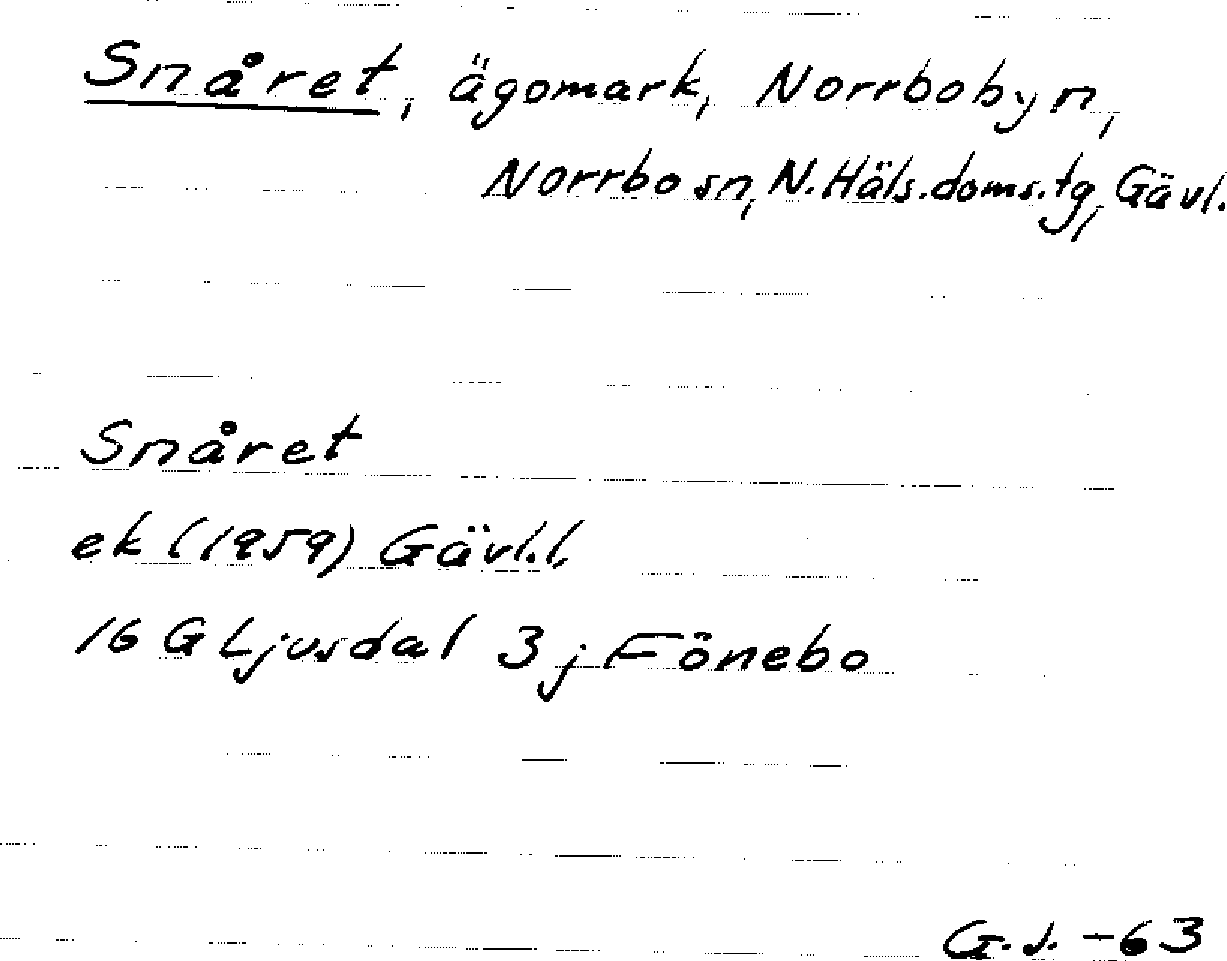 Snåret, ägomark, Norrbobyn,
Norrbo sn, N.Häls.doms.tg, Gävl.
Snåret
ek (1959) Gävl.l,
16 G Ljusdal 3 j Fönebo
G.J. -63